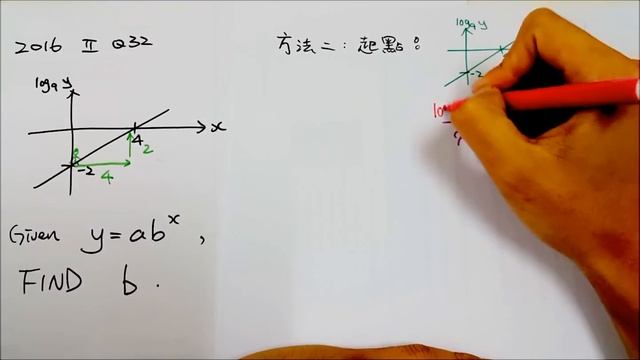 2016 II Q32
log₉ y
x
4
2
4
-2
Given y = abˣ ,
FIND b .
方法二：起點：
log₉ y
-2